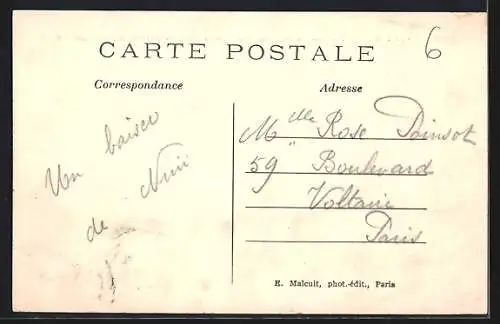 CARTE POSTALE
6
Correspondance
Adresse
Un baiser
de Nini
Mdlle Rose Poinsot
59 " Boulevard
Voltaire
Paris
E. Malcuit, phot.-édit., Paris